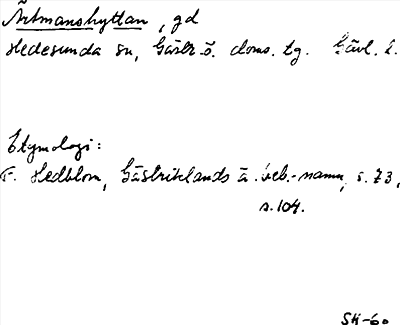 Ärtmanshyttan, gd
Hedesunda sn, Gästr. ö. doms. tg. Gävl. l.
Etymologi:
F. Hedblom, Gästriklands ä. beb.-namn, s. 73,
s. 104.
SH-60